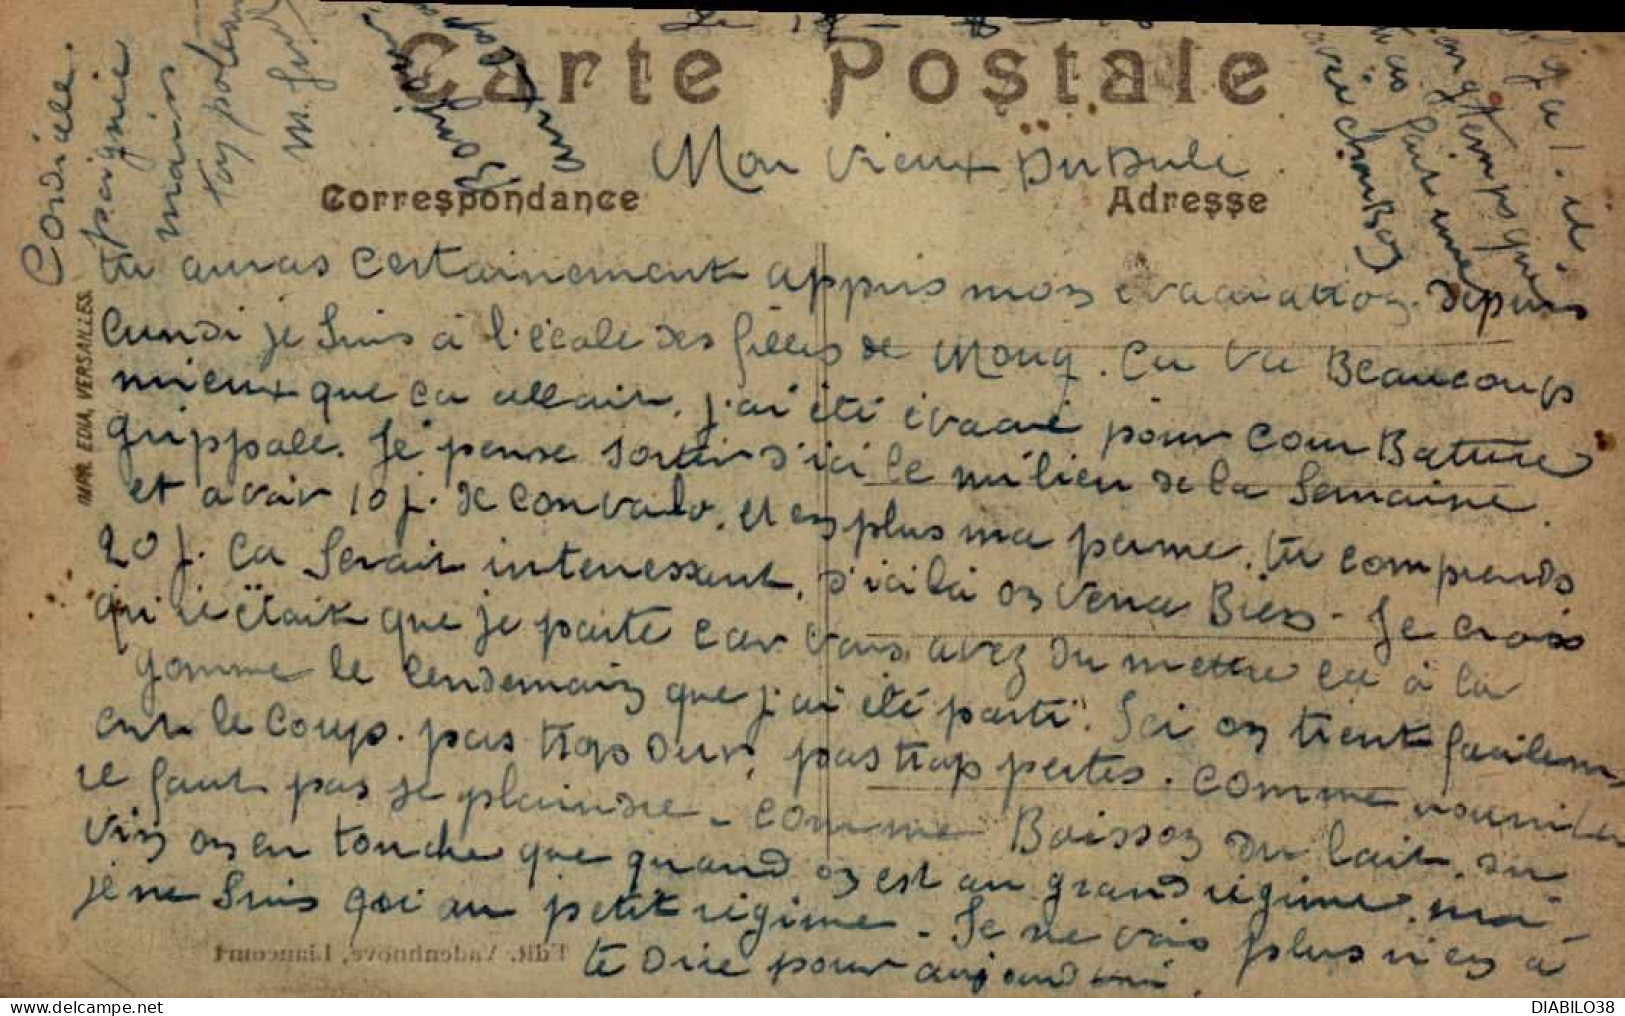 Carte Postale
Correspondance
Adresse
Mon vieux DuBule
tu auras certainement appris mon évacuation. depuis
lundi je suis à l'école des filles de Mouy. Ca va Beaucoup
mieux que ca allait. j'ai été évacué pour courBature
grippale. Je pense sortir d'ici le milieu de la semaine.
et avoir 10 j. de convalo. et en plus ma perme. tu comprends
20 j. ca serait interressant. d'ici là on verra Bien - Je crois
qu'il était que je parte car vous avez du mettre ca à la
gomme le lendemain que j'ai été parti. Ici on tient facilem
ent le coup. pas trop dur, pas trop pertes. comme nourriture
il faut pas se plaindre - comme Boisson du lait. du
vin on en touche que quand on est au grand régime. moi
je ne suis qoi au petit régime - Je ne vois plus rien à
te dire pour aujourd'hui.
Cordiale
poignée
mains
ton
M.
Bonjour
aux
longtemps que
fait une
IMPR. EDIA, VERSAILLES.
Edit. Vadenhnove, Liancourt
DIABILO38